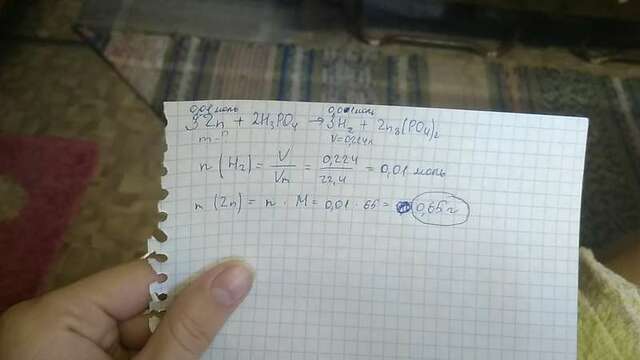 0,01 моль 0,01 моль
3Zn + 2H₃PO₄ → 3H₂ + Zn₃(PO₄)₂
m-? V=0,224л
n (H₂) = V/Vm = 0,224/22,4 = 0,01 моль
m (Zn) = n · M = 0,01 · 65 = 0,65 г